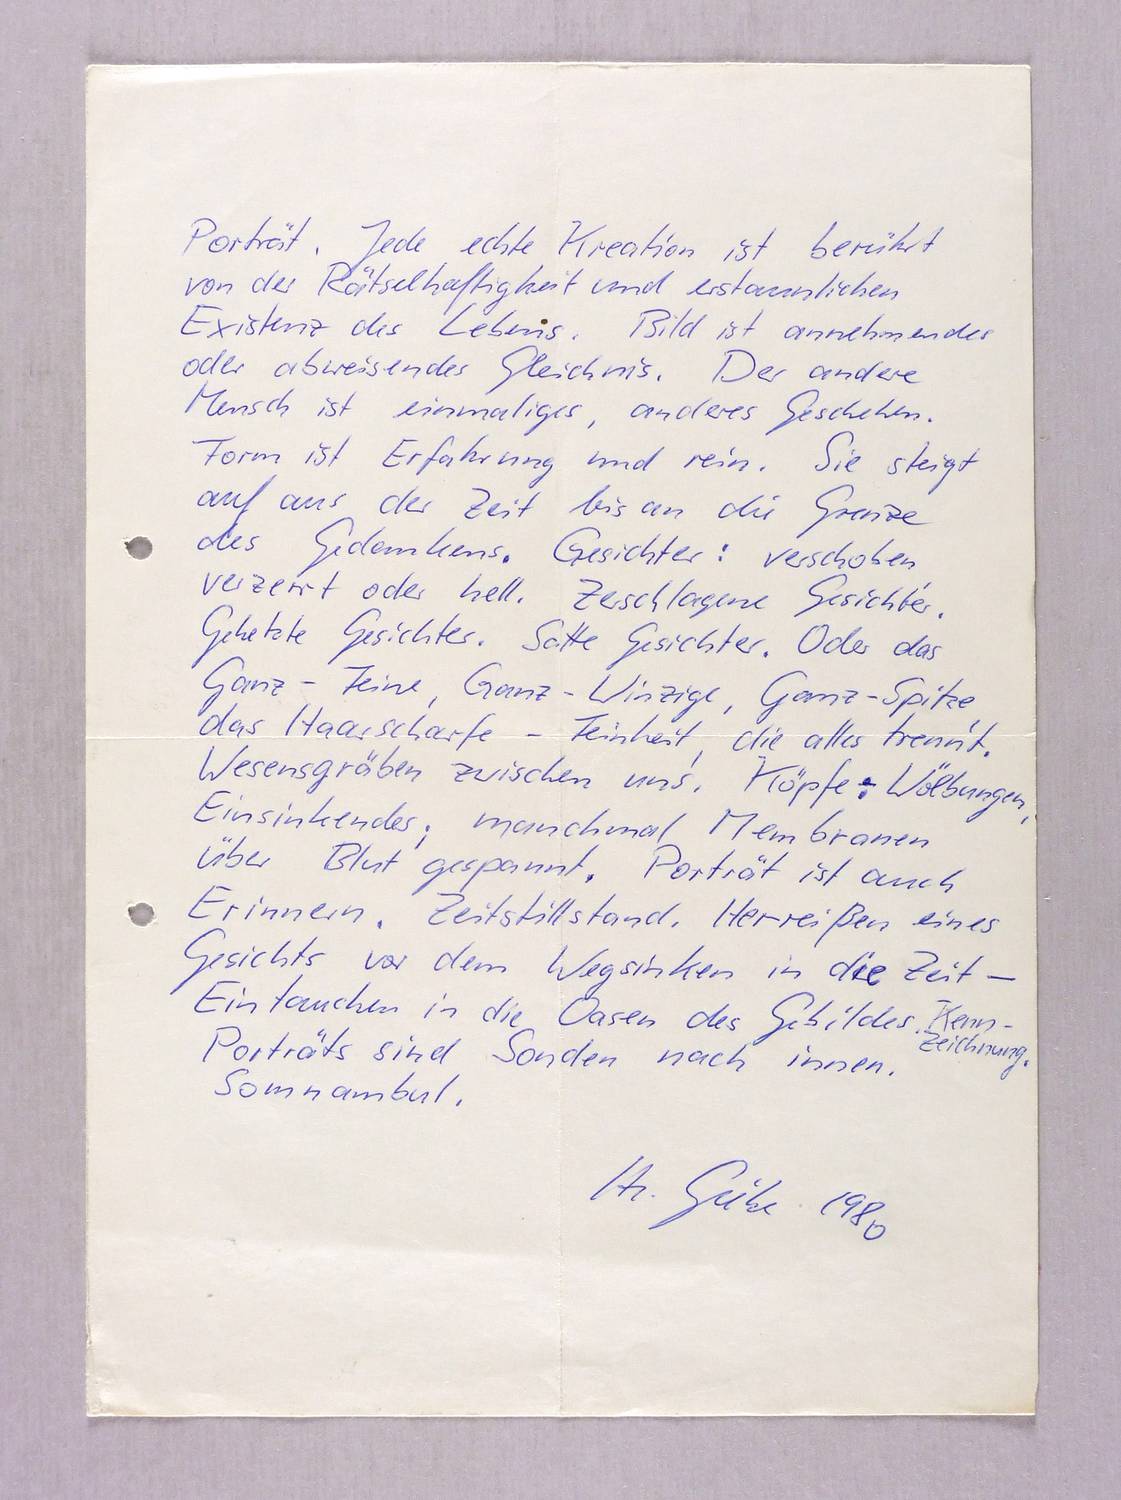 Porträt. Jede echte Kreation ist berührt
von der Rätselhaftigkeit und erstaunlichen
Existenz des Lebens. Bild ist annehmendes
oder abweisendes Gleichnis. Der andere
Mensch ist einmaliges, anderes Geschehen.
Form ist Erfahrung und rein. Sie steigt
auf aus der Zeit bis an die Grenze
des Gedankens. Gesichter: verschoben
verzerrt oder hell. Zerschlagene Gesichter.
Gehetzte Gesichter. Satte Gesichter. Oder das
Ganz-Feine, Ganz-Winzige, Ganz-Spitze
das Haarscharfe - Feinheit, die alles trennt.
Wesensgräben zwischen uns. Köpfe: Wölbungen,
Einsinkendes; manchmal Membranen
über Blut gespannt. Porträt ist auch
Erinnern. Zeitstillstand. Herreißen eines
Gesichts vor dem Wegsinken in die Zeit –
Eintauchen in die Oasen des Gebildes. Kenn-
zeichnung.
Porträts sind Sonden nach innen.
Somnambul.
1980